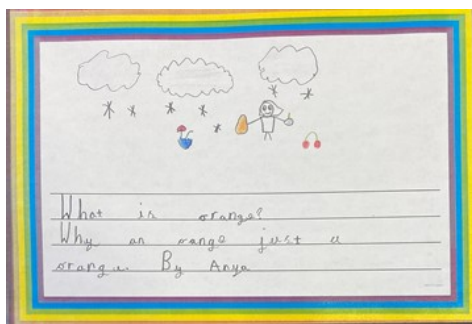 What is orange?
Why an orange just a
orange. By Anya